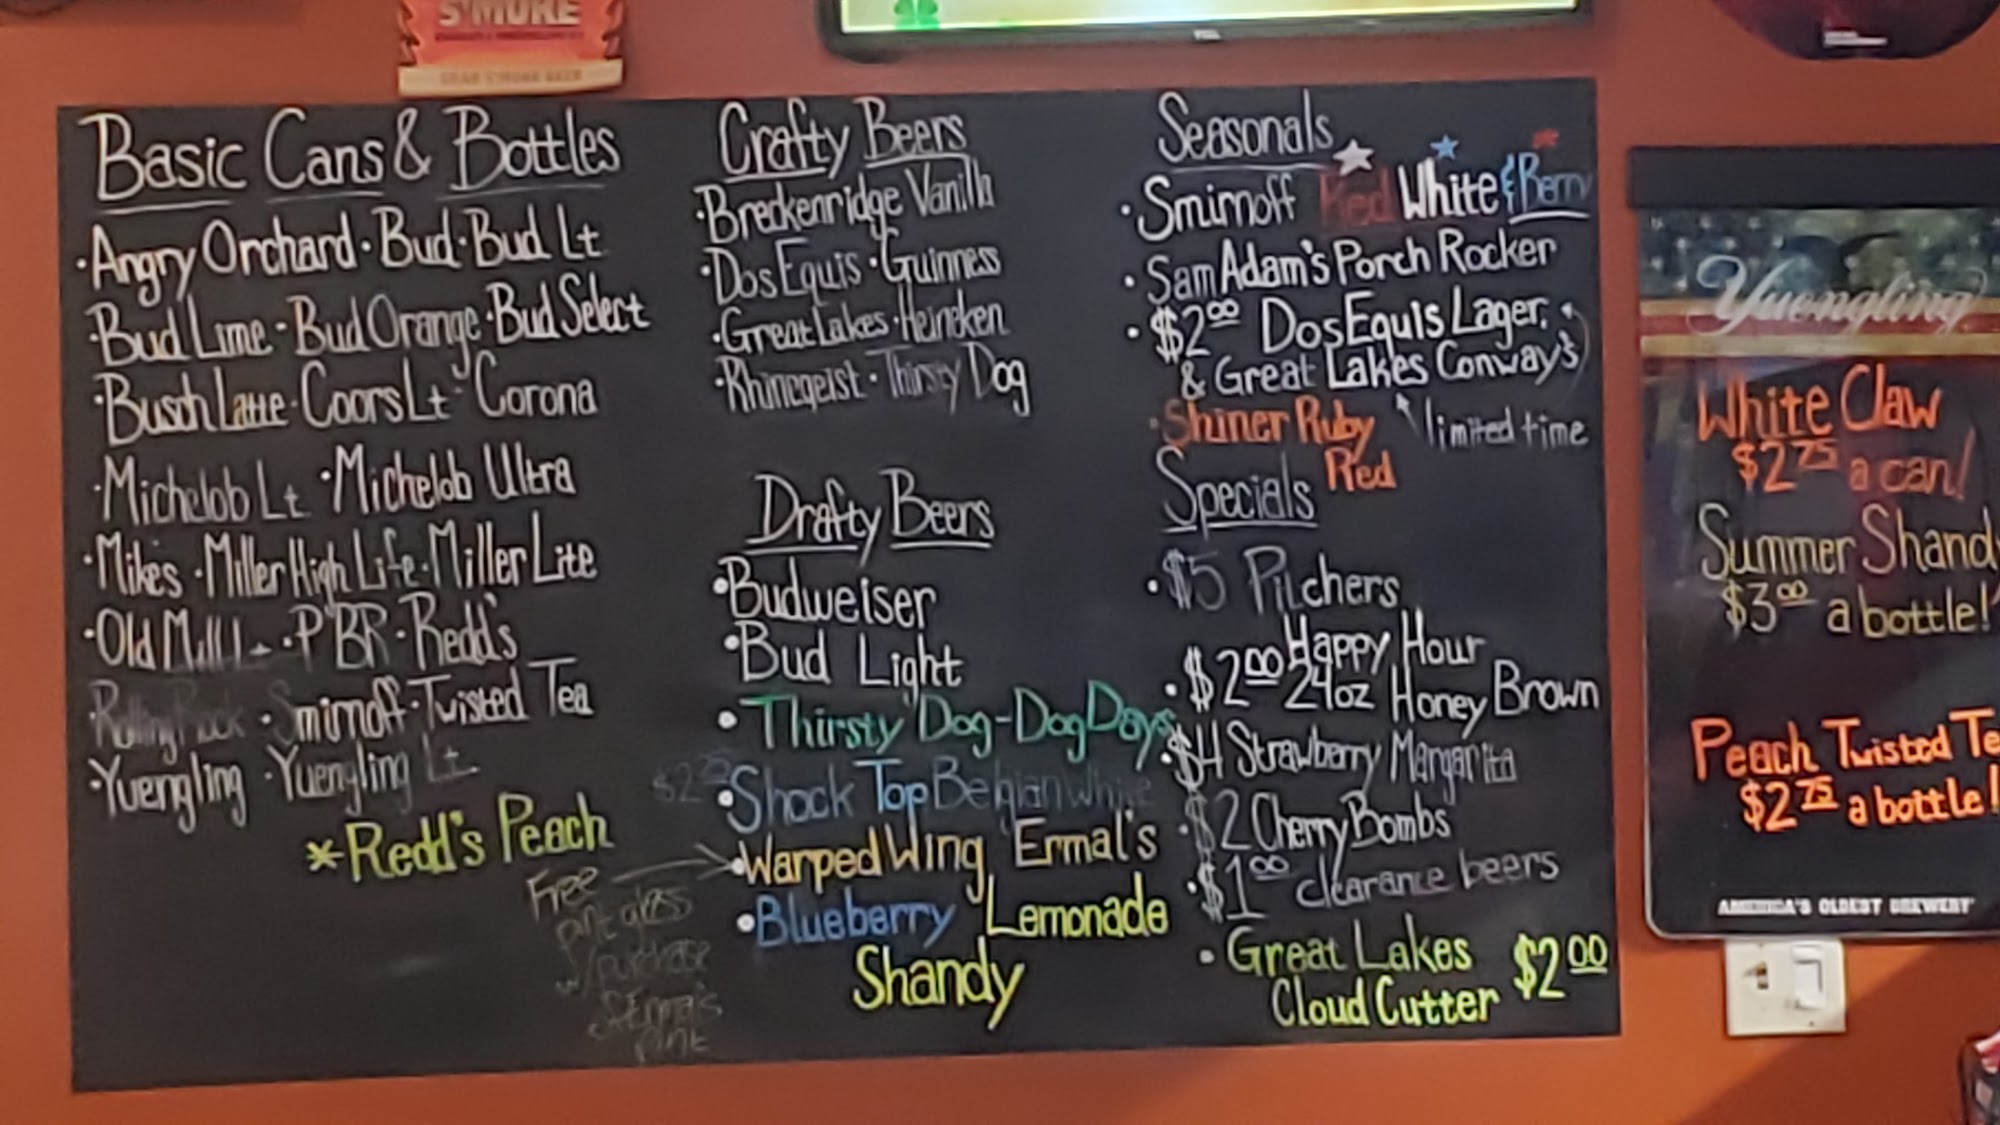 S'MORE
TCL
Basic Cans & Bottles
• Angry Orchard • Bud • Bud Lt
• Bud Lime • Bud Orange • Bud Select
• Busch Latte • Coors Lt • Corona
• Michelob Lt • Michelob Ultra
• Mikes • Miller High Life • Miller Lite
• Old Mill Lt • PBR • Redd's
• Rolling Rock • Smirnoff • Twisted Tea
• Yuengling • Yuengling Lt
* Redd's Peach
Free
pint glass
w/ purchase
Ermal's
pint
Crafty Beers
• Breckenridge Vanilla
• Dos Equis • Guinness
• Great Lakes • Heineken
• Rhinegeist • Thirsty Dog
Drafty Beers
• Budweiser
• Bud Light
• Thirsty Dog - Dog Days
• Shock Top Belgian White
• Warped Wing Ermal's
• Blueberry Lemonade
Shandy
Seasonals
• Smirnoff Red White & Berry
• Sam Adam's Porch Rocker
• $2.00 Dos Equis Lager
& Great Lakes Conway's
limited time
• Shiner Ruby
Red
Specials
• $5 Pitchers
Happy Hour
• $2.00 24oz Honey Brown
• $4 Strawberry Margarita
• $2 Cherry Bombs
• $1.00 clearance beers
• Great Lakes
Cloud Cutter $2.00
Yuengling
White Claw
$2.75 a can!
Summer Shandy
$3.00 a bottle!
Peach Twisted Te
$2.75 a bottle!
AMERICA'S OLDEST BREWERY